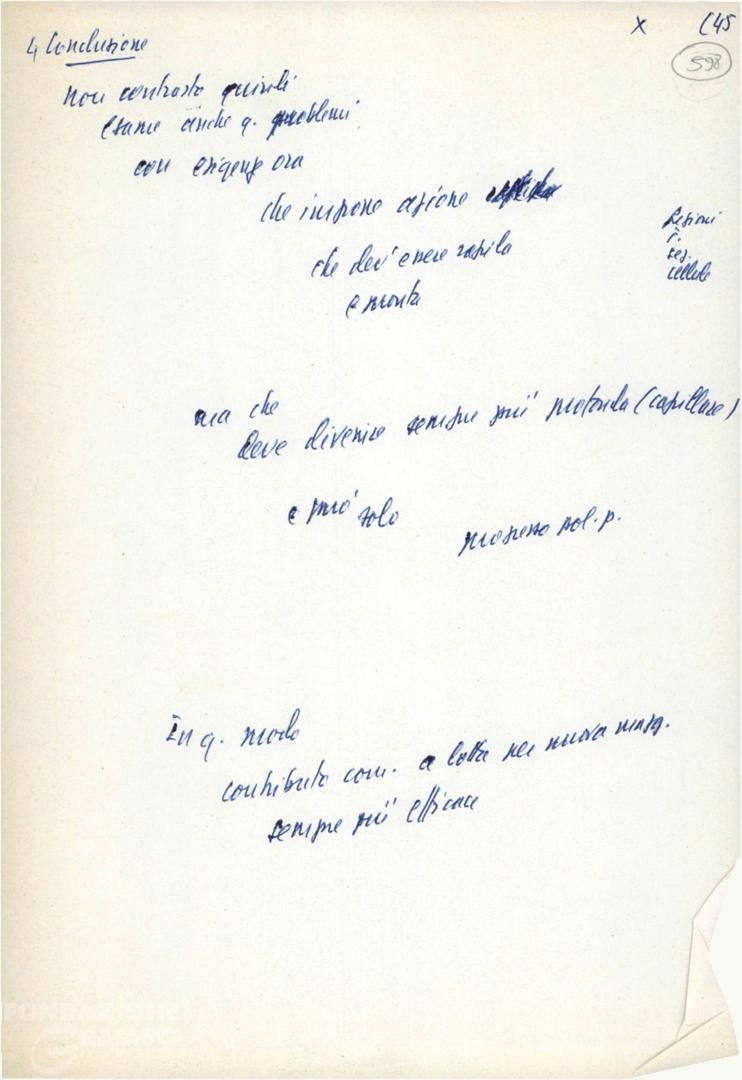 X (45
598
4 Conclusione
non contrasto quindi
esame anche q. problemi
con esigenze ora
che impone azione
che dev'essere rapida
e pronta
sezioni
sez.
cellule
ma che
deve divenire sempre più profonda (capillare)
e può solo
pol. p.
In q. modo
contributo com. a lotta per nuova magg.
sempre più efficace
FONDAZIONE